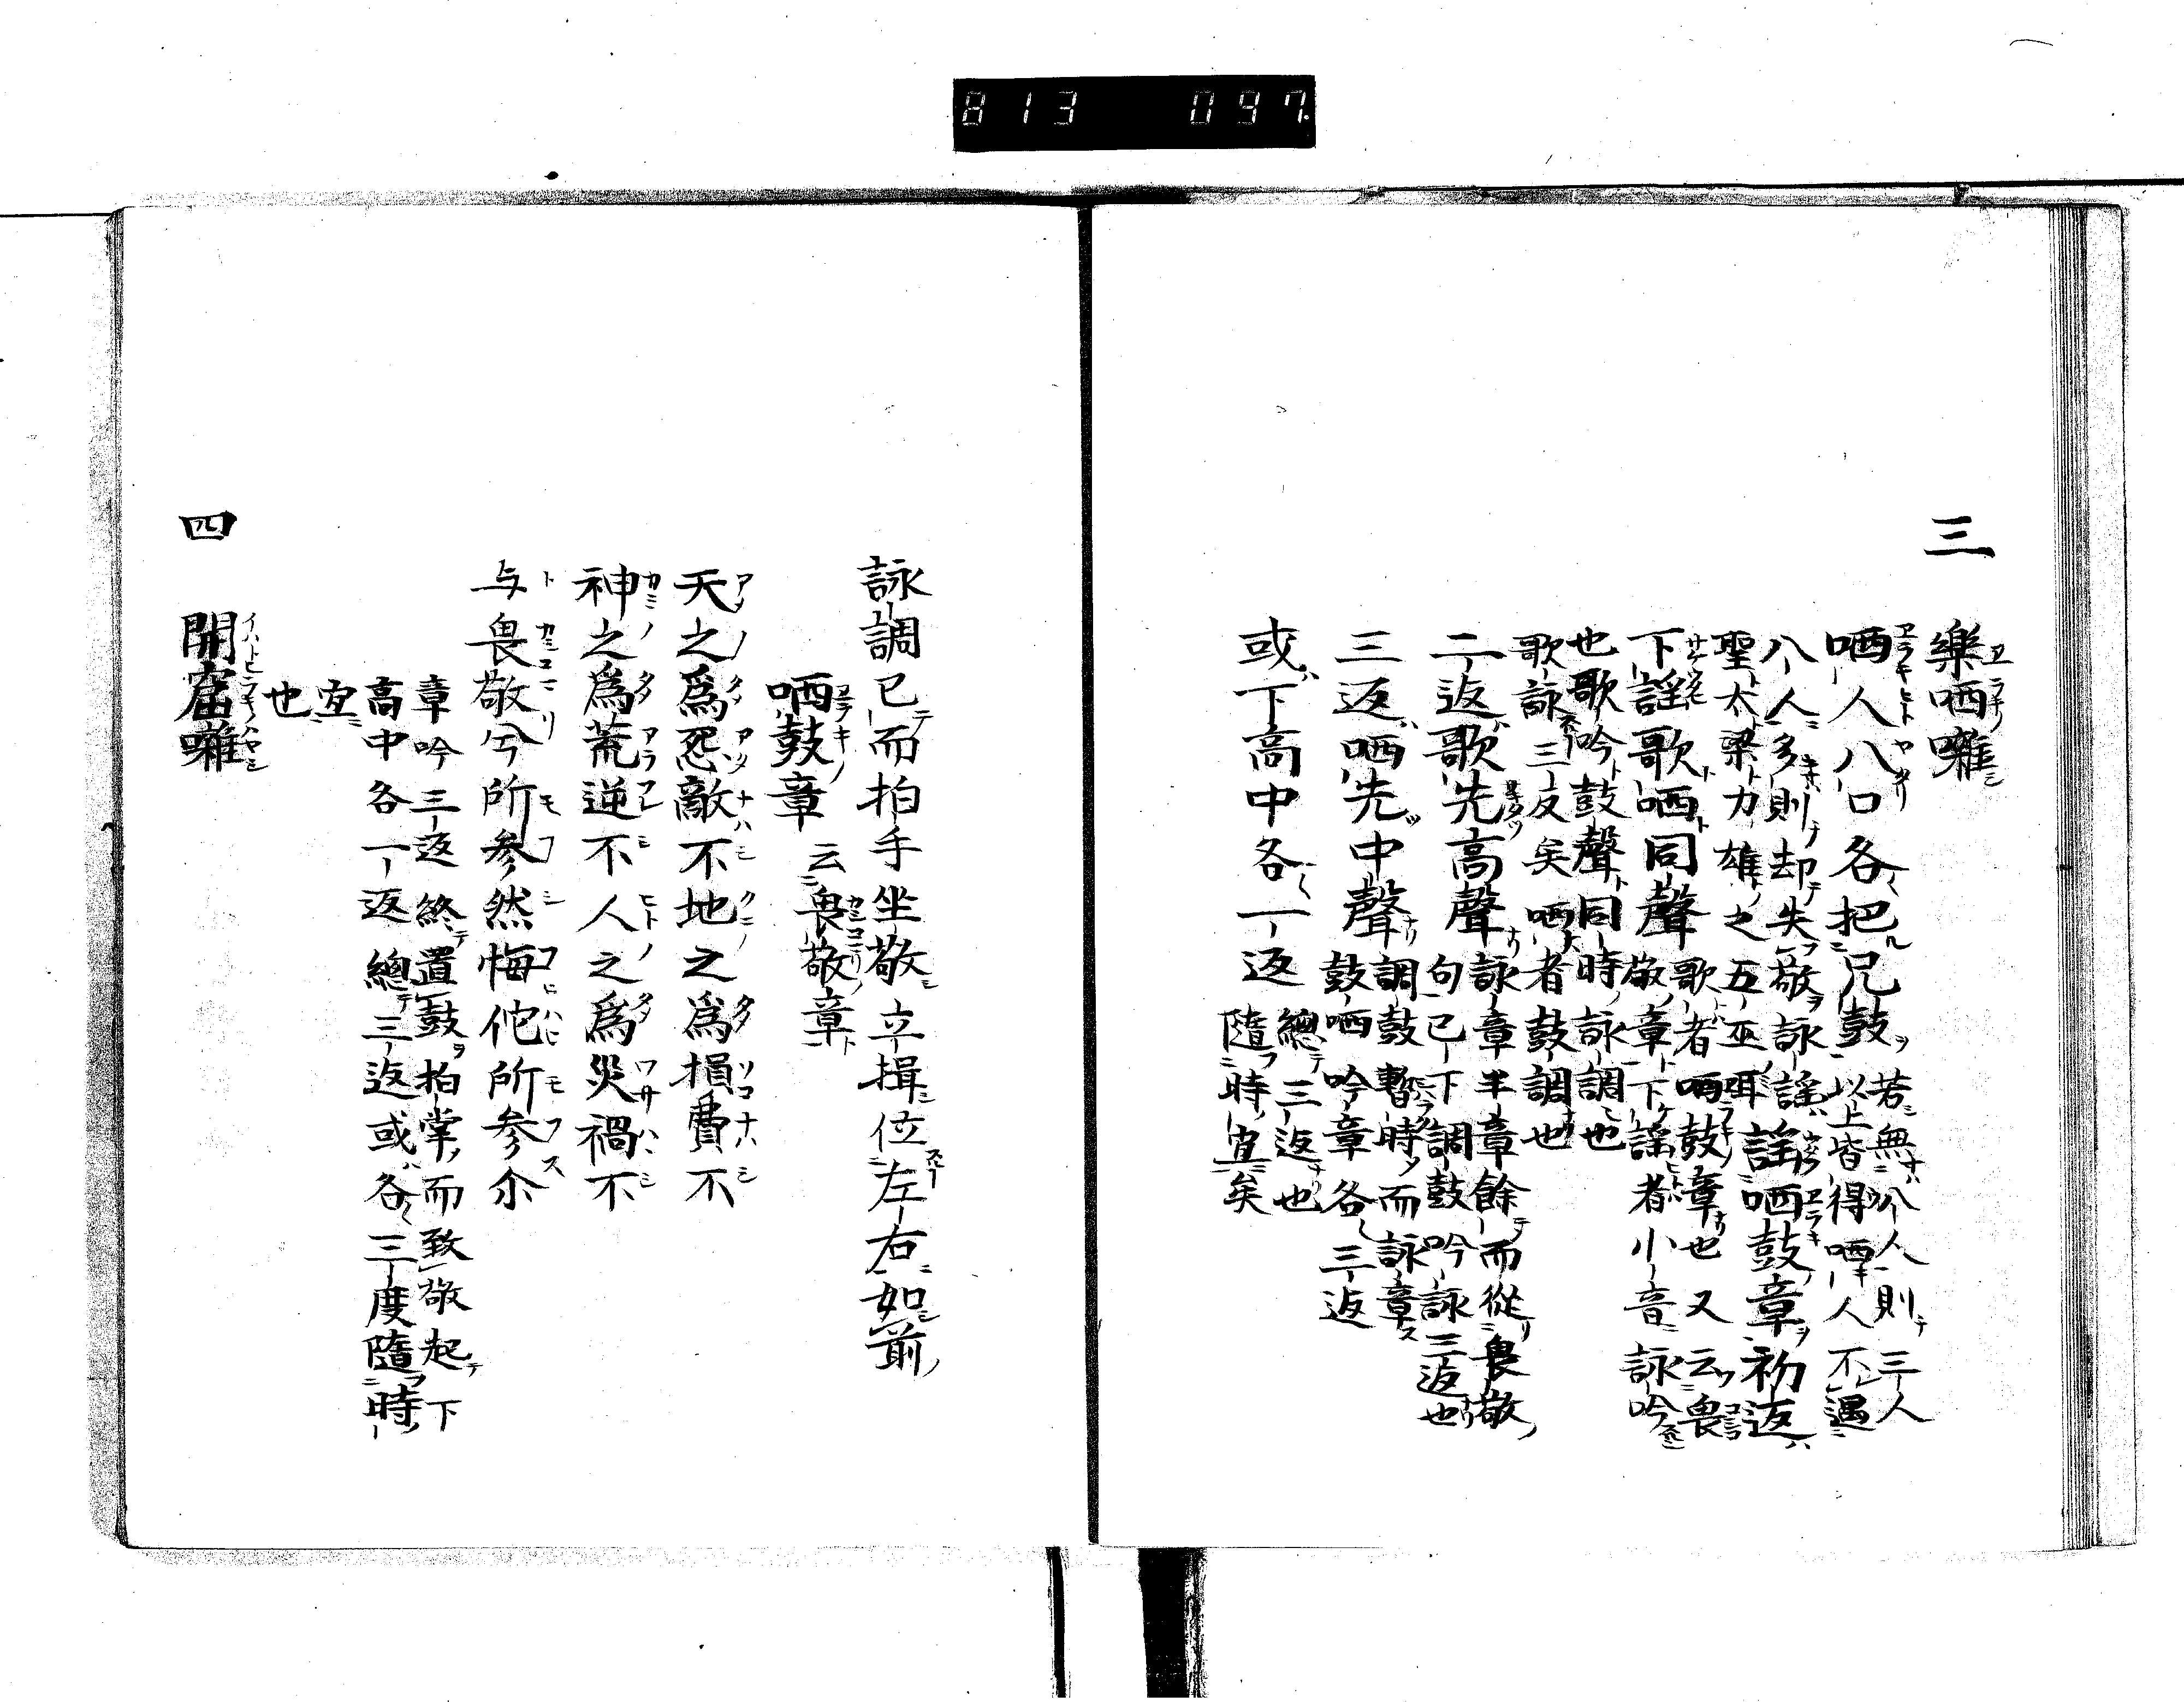 813 097
三
樂哂囃
哂人八口各把兄鼓若無八人則三人
以上皆得哂人不遇
八人多則却失敬詠謠
聖太梁力雄之五巫耳謠哂鼓章初返
下謡歌哂同聲歌者哂鼓章也又云畏
敬章下謡者小音詠吟
也歌吟鼓聲同時詠調也
歌詠三反矣哂者鼓調也
二返歌先高聲詠章半章餘而從畏敬
句已下調鼓吟詠三返也
三返哂先中聲調鼓暫時而詠章
鼓哂吟章各三返
或下高中各一返總三返也
隨時宜矣
詠調已而拍手坐敬立揖位左右如前
哂鼓章 云畏敬章
天之爲怨敵不地之爲損費不
神之爲荒逆不人之爲災禍不
与畏敬兮所参然悔他所参尒
章吟三返終置鼓拍掌而致敬起下
高中各一返總三返或各三度隨時
宜
也
四
開窟囃